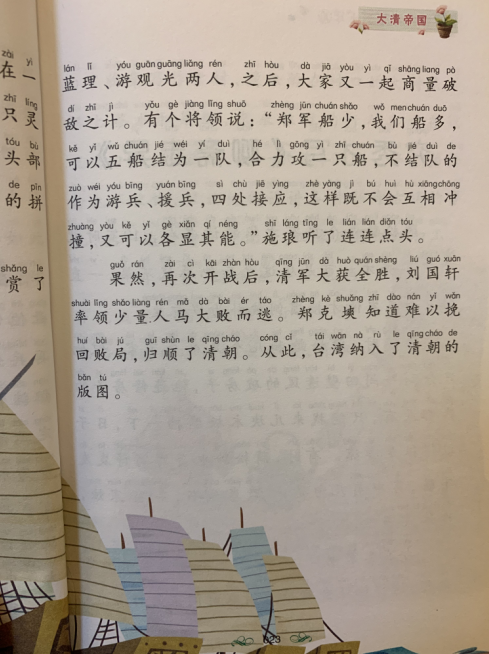 大清帝国
zài yì
在一
zhī líng
只灵
tóu bù
头部
de pīn
的拼
shǎng le
赏了
lán lǐ yóu guān guāng liǎng rén zhī hòu dà jiā yòu yì qǐ shāng liang pò
蓝理、游观光两人，之后，大家又一起商量破
dí zhī jì yǒu gè jiàng lǐng shuō zhèng jūn chuán shǎo wǒ men chuán duō
敌之计。有个将领说：“郑军船少，我们船多，
kě yǐ wǔ chuán jié wéi yí duì hé lì gōng yì zhī chuán bù jié duì de
可以五船结为一队，合力攻一只船，不结队的
zuò wéi yóu bīng yuán bīng sì chù jiē yìng zhè yàng jì bú huì hù xiāng chōng
作为游兵、援兵，四处接应，这样既不会互相冲
zhuàng yòu kě yǐ gè xiǎn qí néng shī láng tīng le lián lián diǎn tóu
撞，又可以各显其能。”施琅听了连连点头。
guǒ rán zài cì kāi zhàn hòu qīng jūn dà huò quán shèng liú guó xuān
果然，再次开战后，清军大获全胜，刘国轩
shuài lǐng shǎo liàng rén mǎ dà bài ér táo zhèng kè shuǎng zhī dào nán yǐ wǎn
率领少量人马大败而逃。郑克塽知道难以挽
huí bài jú guī shùn le qīng cháo cóng cǐ tái wān nà rù le qīng cháo de
回败局，归顺了清朝。从此，台湾纳入了清朝的
bǎn tú
版图。